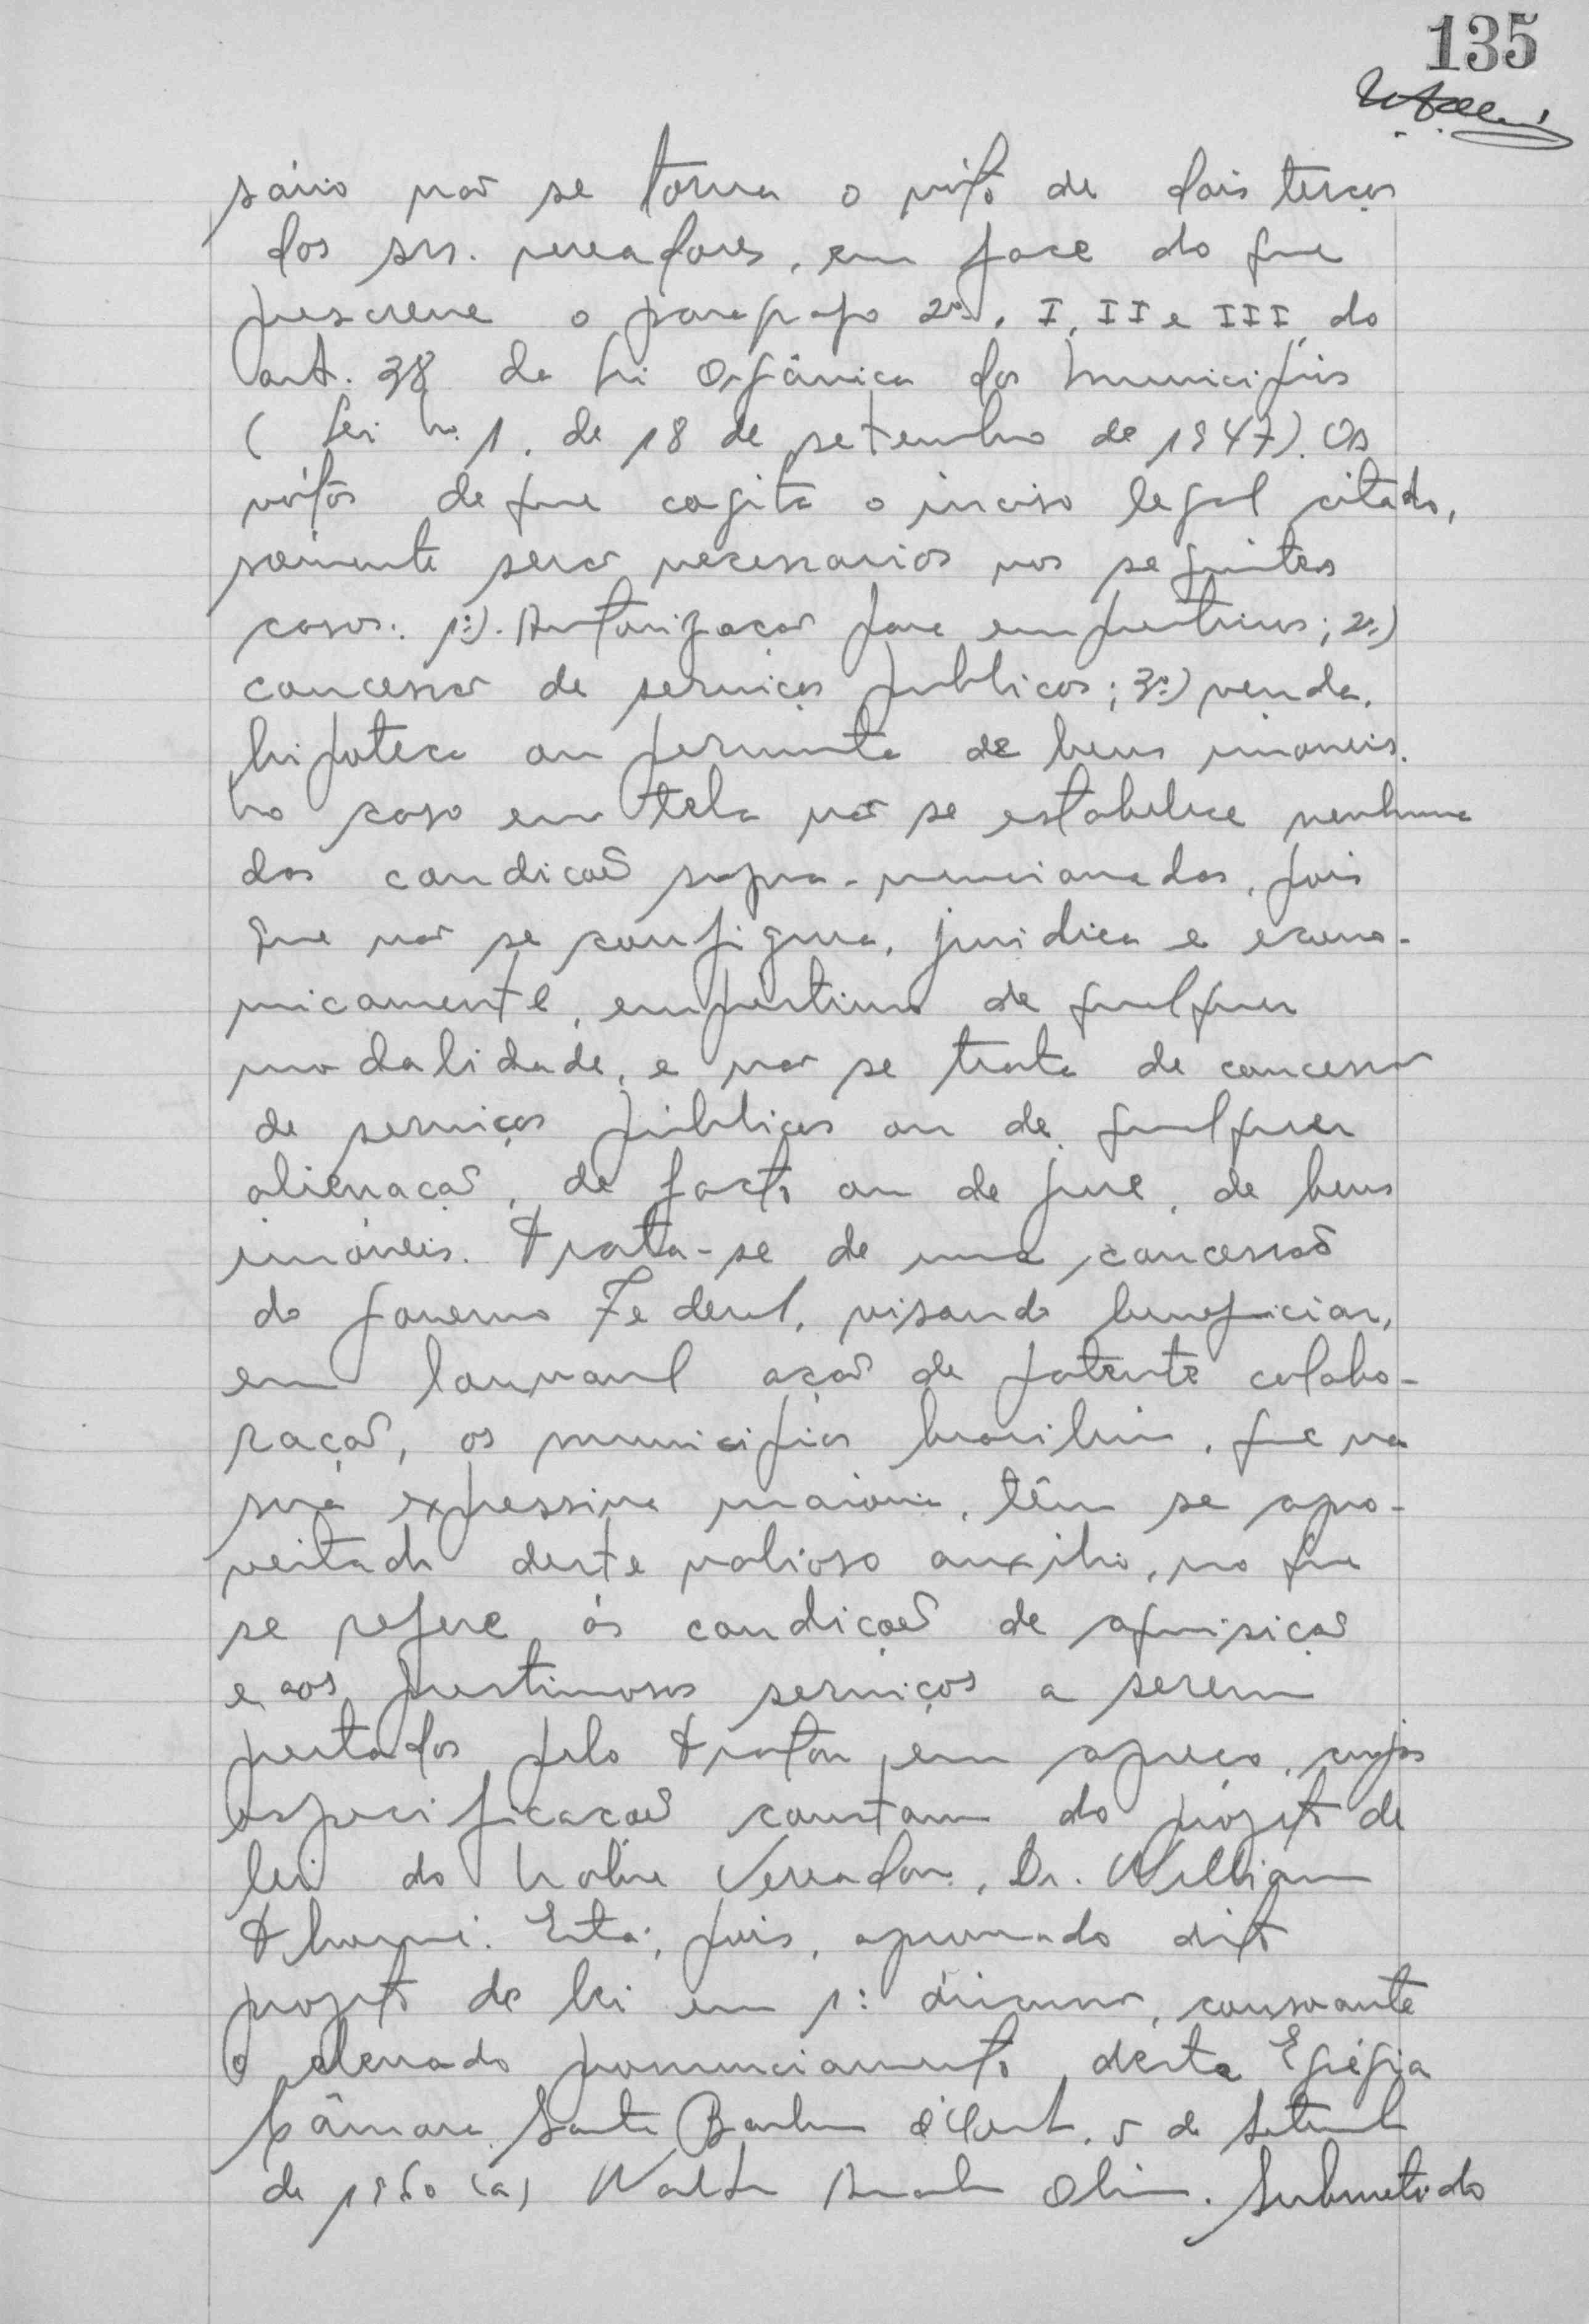 135
sário não se torna o vóto de dois terços
dos srs. vereadores, em face do que
prescreve o paragrafo 2º, I, II e III, do
art. 38 da Lei Orgânica dos Municipios
(Lei nº 1, de 18 de setembro de 1947). Os
vótos de que cogita o inciso legal citado,
sómente serão necessarios nos seguintes
casos: 1º). Autorização para emprestimos; 2º)
concessão de serviços publicos; 3º) venda,
hipoteca ou permuta de bens imoveis.
No caso em téla não se estabelece nenhuma
das condições supra-mencionadas, pois
que não se configura, juridica e econo-
micamente, emprestimo de qualquer
modalidade, e não se trata de concessão
de serviços públicos ou de qualquer
alienação, de facto ou de jure, de bens
imóveis. Trata-se de uma concessão
do Governo Federal, visando beneficiar,
em louvavel ação de patente colabo-
ração, os municipios brasileiros, que na
sua expressiva maioria, têm se apro-
veitado deste valioso auxilio, no que
se refere ás condições de aquisição
e aos prestimosos serviços a serem
prestados pelo trator em apreço, cujas
especificações constam do projeto de
lei do nobre Vereador, Dr. William
Está, pois, aprovado dito
projeto de lei em 1ª discussão, consoante
o elevado pronunciamento desta Egrégia
Câmara. Santa Barbara d'Oeste, 5 de Setembro
de 1960 (a) Submetido